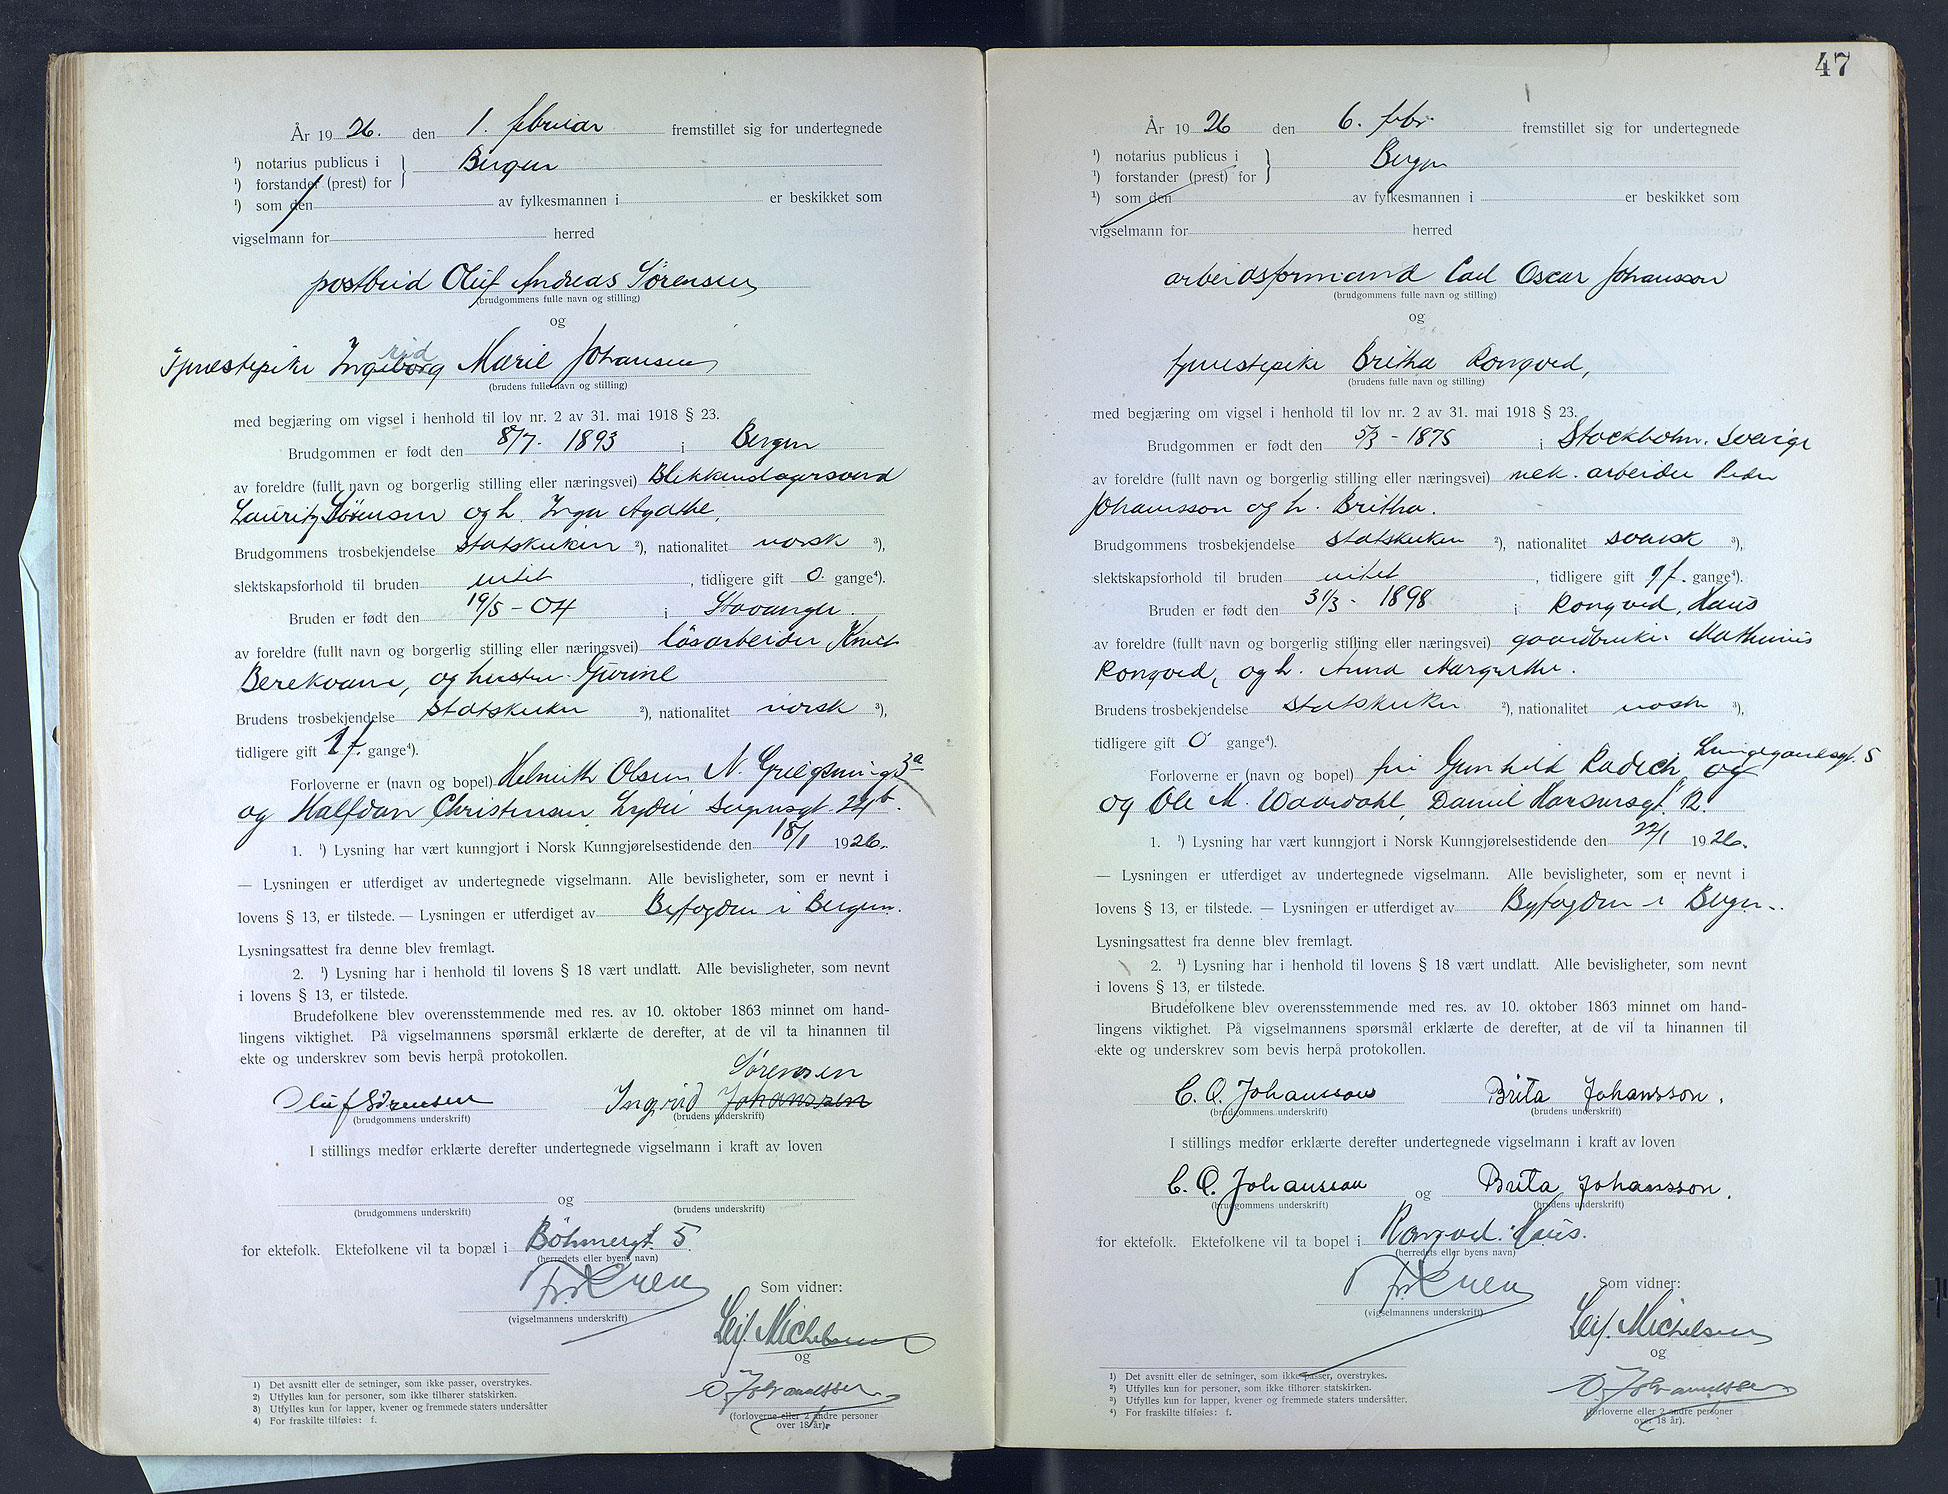 År 1926. den 1. februar fremstillet sig for undertegnede
¹) notarius publicus i Bergen
¹) forstander (prest) for
¹) som den av fylkesmannen i er beskikket som
vigselmann for herred
postbud Oluf Andreas Sørensen
(brudgommens fulle navn og stilling)
og
rid
Tjenestepike Ingeborg Marie Johansen
(brudens fulle navn og stilling)
med begjæring om vigsel i henhold til lov nr. 2 av 31. mai 1918 § 23.
Brudgommen er født den 8/7. 1893 i Bergen
av foreldre (fullt navn og borgerlig stilling eller næringsvei) Blikkenslagersvend
Lauritz Sørensen og h. Inga Agathe,
Brudgommens trosbekjendelse statskirken ²), nationalitet norsk ³),
slektskapsforhold til bruden intet , tidligere gift 0 gange⁴).
Bruden er født den 19/5 - 04 i Stavanger.
av foreldre (fullt navn og borgerlig stilling eller næringsvei) løsarbeider Knut
Berekvam, og hustru Gurine
Brudens trosbekjendelse statskirken ²), nationalitet norsk ³),
tidligere gift 1 f. gange⁴).
Forloverne er (navn og bopel) Helmith Olsen N. 3a
og Halfdan Christensen, Lyder Sagensgt. 24b.
1. ¹) Lysning har vært kunngjort i Norsk Kunngjørelsestidende den 18/1 1926.
— Lysningen er utferdiget av undertegnede vigselmann. Alle bevisligheter, som er nevnt i
lovens § 13, er tilstede. — Lysningen er utferdiget av Byfogden i Bergen.
Lysningsattest fra denne blev fremlagt.
2. ¹) Lysning har i henhold til lovens § 18 vært undlatt. Alle bevisligheter, som nevnt
i lovens § 13, er tilstede.
Brudefolkene blev overensstemmende med res. av 10. oktober 1863 minnet om hand-
lingens viktighet. På vigselmannens spørsmål erklærte de derefter, at de vil ta hinannen til
ekte og underskrev som bevis herpå protokollen.
Sørensen
Oluf Sörensen Ingrid Johanssen
(brudgommens underskrift) (brudens underskrift)
I stillings medfør erklærte derefter undertegnede vigselmann i kraft av loven
og
(brudgommens underskrift) (brudens underskrift)
for ektefolk. Ektefolkene vil ta bopæl i Böhmergt. 5.
(herredets eller byens navn)
Som vidner:
(vigselmannens underskrift)
Leif. Michelsen
og
O. Johannessen
(forloverne eller 2 andre personer
over 18 år).
1) Det avsnitt eller de setninger, som ikke passer, overstrykes.
2) Utfylles kun for personer, som ikke tilhører statskirken.
3) Utfylles kun for lapper, kvener og fremmede staters undersåtter
4) For fraskilte tilføies: f.
47
År 1926 den 6. febr. fremstillet sig for undertegnede
¹) notarius publicus i Bergen
¹) forstander (prest) for
¹) som den av fylkesmannen i er beskikket som
vigselmann for herred
arbeidsformand Carl Oscar Johansson
(brudgommens fulle navn og stilling)
og
tjenestepike Britha Rongved,
(brudens fulle navn og stilling)
med begjæring om vigsel i henhold til lov nr. 2 av 31. mai 1918 § 23.
Brudgommen er født den 5/3 - 1875 i Stockholm. Sverige
av foreldre (fullt navn og borgerlig stilling eller næringsvei) mek. arbeider Peder
Johansson og h. Britha.
Brudgommens trosbekjendelse statskirken ²), nationalitet svensk ³),
slektskapsforhold til bruden intet , tidligere gift 1 f. gange⁴).
Bruden er født den 31/3 - 1898 i Rongved, Haus
av foreldre (fullt navn og borgerlig stilling eller næringsvei) gaardbruker Mathias
Rongved, og h. Anna Margrethe.
Brudens trosbekjendelse statskirken ²), nationalitet norsk ³),
tidligere gift 0 gange⁴).
Forloverne er (navn og bopel) fru Gunhild Radich, Lungegaardsgt. 5 og
og Ole M. Waardahl, Daniel Hansensgt. 12.
1. ¹) Lysning har vært kunngjort i Norsk Kunngjørelsestidende den 22/1 1926.
— Lysningen er utferdiget av undertegnede vigselmann. Alle bevisligheter, som er nevnt i
lovens § 13, er tilstede. — Lysningen er utferdiget av Byfogden i Bergen.
Lysningsattest fra denne blev fremlagt.
2. ¹) Lysning har i henhold til lovens § 18 vært undlatt. Alle bevisligheter, som nevnt
i lovens § 13, er tilstede.
Brudefolkene blev overensstemmende med res. av 10. oktober 1863 minnet om hand-
lingens viktighet. På vigselmannens spørsmål erklærte de derefter, at de vil ta hinannen til
ekte og underskrev som bevis herpå protokollen.
C. O. Johansson Brita Johansson.
(brudgommens underskrift) (brudens underskrift)
I stillings medfør erklærte derefter undertegnede vigselmann i kraft av loven
C. O. Johansson og Brita Johansson.
(brudgommens underskrift) (brudens underskrift)
for ektefolk. Ektefolkene vil ta bopel i Rongved. Haus.
(herredets eller byens navn)
Som vidner:
(vigselmannens underskrift)
Leif. Michelsen
og
O. Johannessen
(forloverne eller 2 andre personer
over 18 år).
¹) Det avsnitt eller de setninger, som ikke passer, overstrykes.
²) Utfylles kun for personer, som ikke tilhører statskirken.
³) Utfylles kun for lapper, kvener og fremmede staters undersåtter.
⁴) For fraskilte tilføies: f.